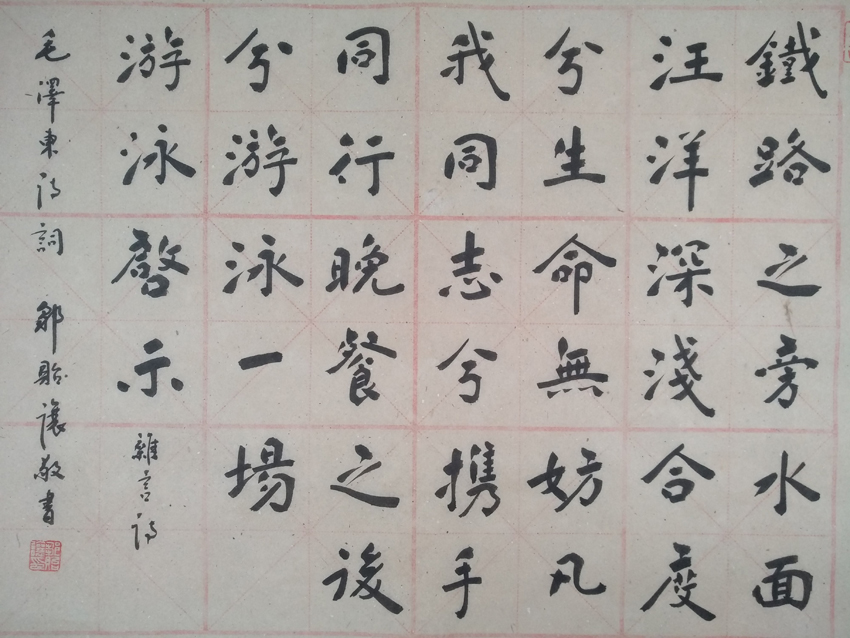 鐵路之旁水面
汪洋深淺合度
兮生命無妨凡
我同志兮携手
同行晚餐之後
兮游泳一場
游泳啓示
雜言詩
毛澤東詩詞 鄒貽讓敬書